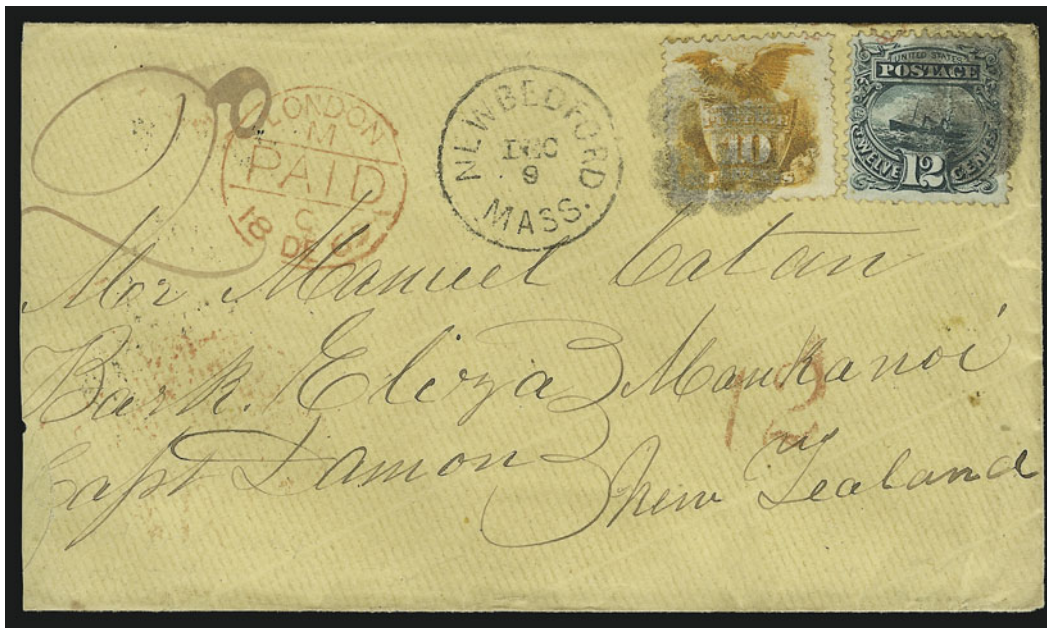 LONDON
M
PAID
C
18 DE 6
NEW BEDFORD
DEC
9
MASS.
10
UNITED STATES
POSTAGE
TWELVE 12 CENTS
Mr Manuel Catan
Bark. Eliza Maukanoi
Capt Damon New Zealand
12